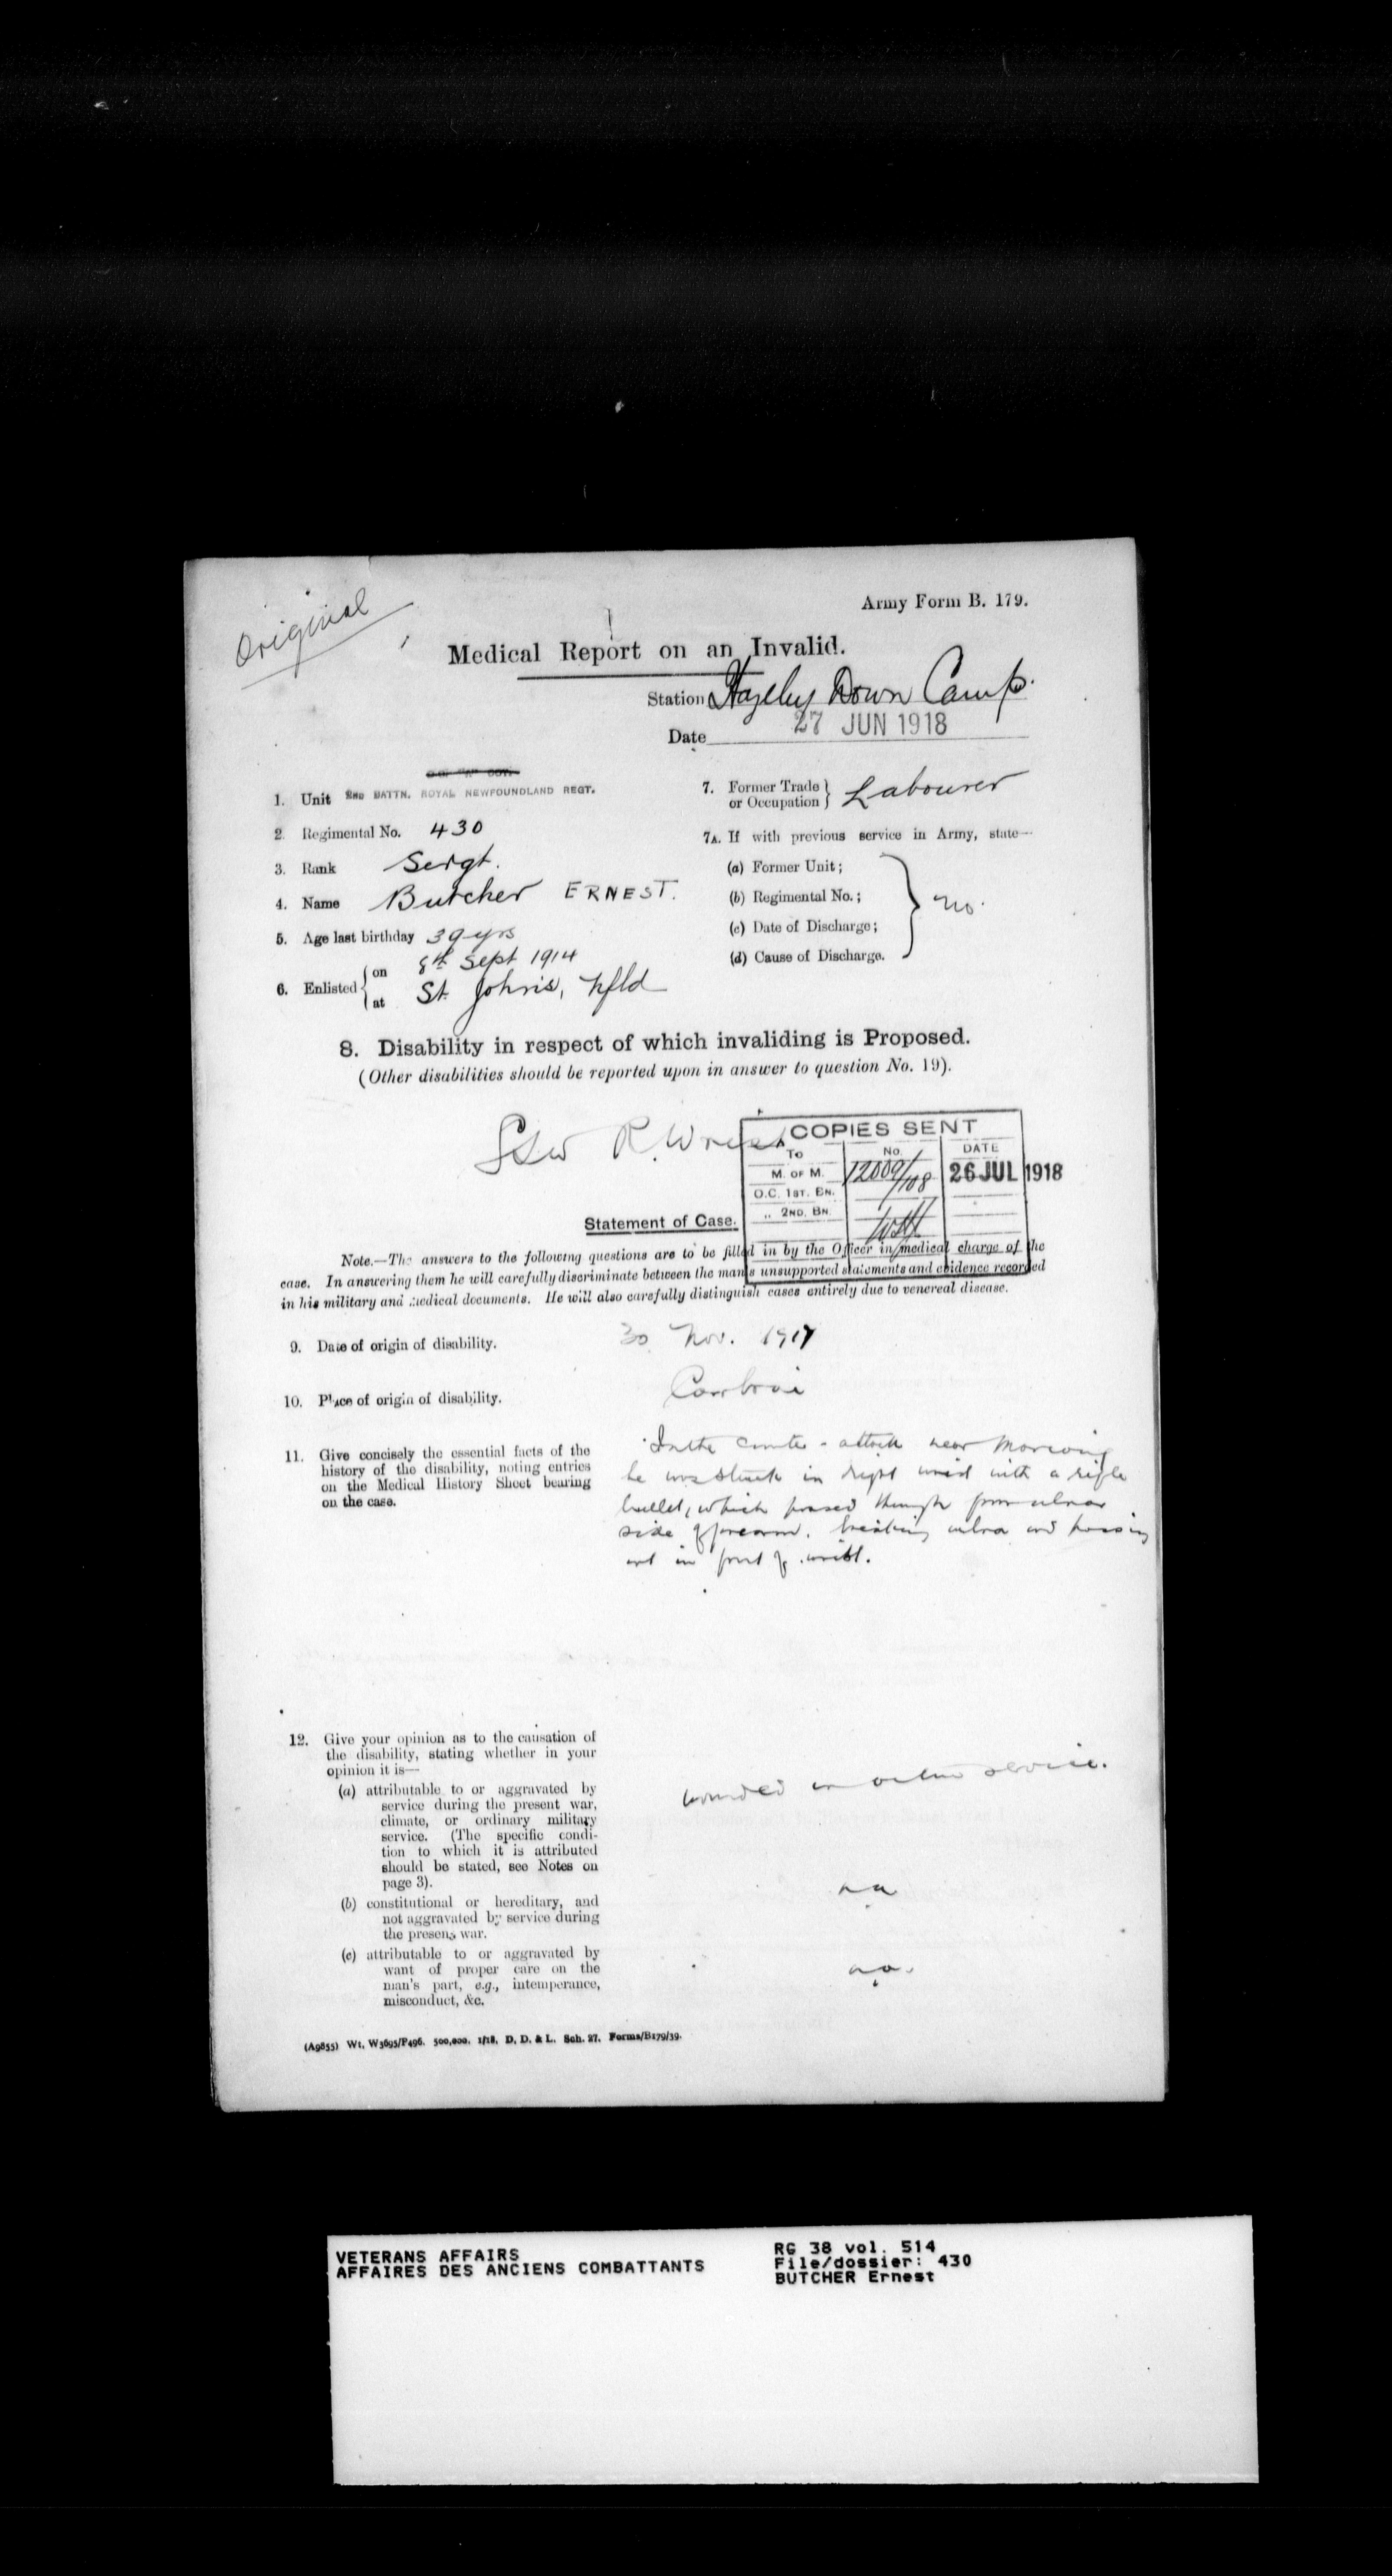 Original
Army Form B. 179.
Medical Report on an Invalid.
Station Hazeley Down Camp.
Date 27 JUN 1918
1. Unit 2ND BATTN. ROYAL NEWFOUNDLAND REGT.
2. Regimental No. 430
3. Rank Sergt.
4. Name Butcher ERNEST.
5. Age last birthday 39 yrs
6. Enlisted { on 8th Sept 1914
at St. John's, Nfld
7. Former Trade
or Occupation } Labourer
7A. If with previous service in Army, state—
(a) Former Unit;
(b) Regimental No.;
(c) Date of Discharge;
(d) Cause of Discharge.
} no.
8. Disability in respect of which invaliding is Proposed.
(Other disabilities should be reported upon in answer to question No. 19).
GSW R. Wrist
COPIES SENT
To No. DATE
M. OF M. 12009/108 26 JUL 1918
O.C. 1ST. BN.
,, 2ND. BN.
Statement of Case.
Note.—The answers to the following questions are to be filled in by the Officer in medical charge of the
case. In answering them he will carefully discriminate between the man's unsupported statements and evidence recorded
in his military and medical documents. He will also carefully distinguish cases entirely due to venereal disease.
9. Date of origin of disability. 30 Nov. 1917
10. Place of origin of disability. Cambrai
11. Give concisely the essential facts of the
history of the disability, noting entries
on the Medical History Sheet bearing
on the case.
In the counter-attack near
he was struck in right wrist with a rifle
bullet, which passed through from ulnar
side of forearm, breaking ulna and passing
out in front of wrist.
12. Give your opinion as to the causation of
the disability, stating whether in your
opinion it is—
(a) attributable to or aggravated by
service during the present war,
climate, or ordinary military
service. (The specific condi-
tion to which it is attributed
should be stated, see Notes on
page 3).
wounded in active service.
(b) constitutional or hereditary, and
not aggravated by service during
the present war.
no
(c) attributable to or aggravated by
want of proper care on the
man's part, e.g., intemperance,
misconduct, &c.
no.
(A9855) Wt. W3695/P496. 500,000. 1/18. D. D. & L. Sch. 27. Forms/B179/39.
VETERANS AFFAIRS
AFFAIRES DES ANCIENS COMBATTANTS
RG 38 vol. 514
File/dossier: 430
BUTCHER Ernest